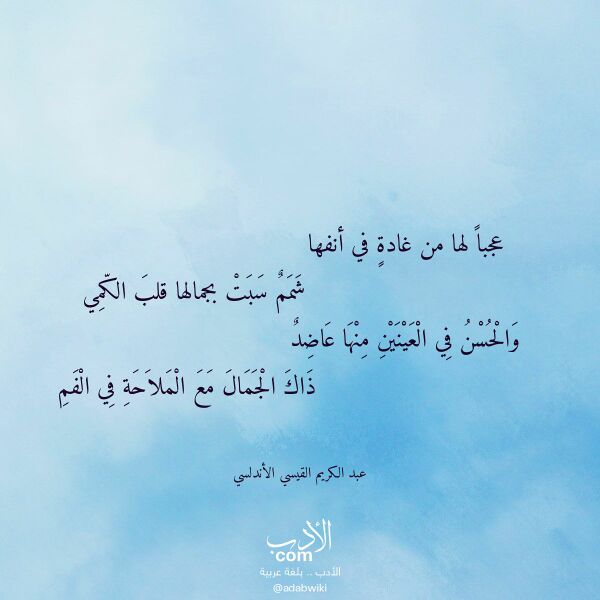 عجباً لها من غادةٍ في أنفها
شَمَمٌ سَبَتْ بجمالها قلبَ الكّمِي
وَالْحُسْنُ فِي الْعَيْنَيْنِ مِنْهَا عَاضِدٌ
ذَاكَ الْجَمَالَ مَعَ الْمَلاَحَةِ فِي الْفَمِ
عبد الكريم القيسي الأندلسي
الأدب
com
الأدب .. بلغة عربية
@adabwiki